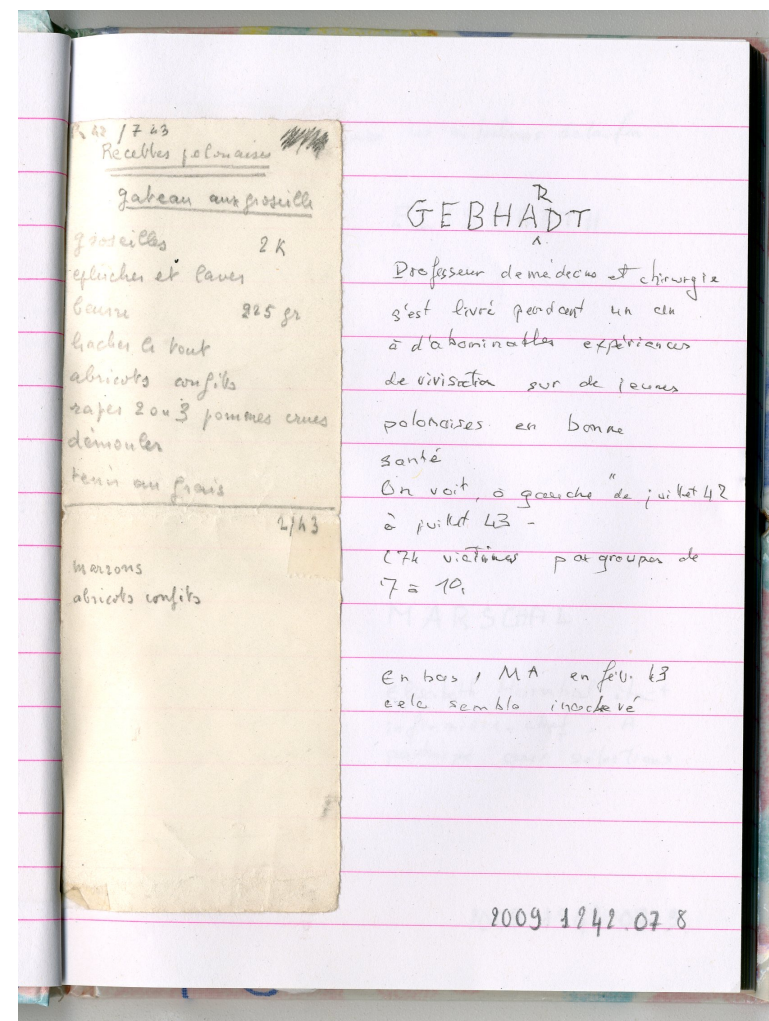 42 / 7 43
Recettes polonaises
gateau aux groseille
groseilles 2 K
eplucher et laver
beurre 225 gr
hacher le tout
abricots confits
raper 2 ou 3 pommes crues
démouler
tenir au frais
2/43
marrons
abricots confits
GEBHARDT
Professeur de médecine et chirurgie
s'est livré pendant un an
à d'abominables expériences
de vivisection sur de jeunes
polonaises en bonne
santé
On voit, à gauche "de juillet 42
à juillet 43 -
(74 victimes par groupes de
7 à 10.
En bas, MA en fév. 43
cela semble inachevé
2009 1242.07.8